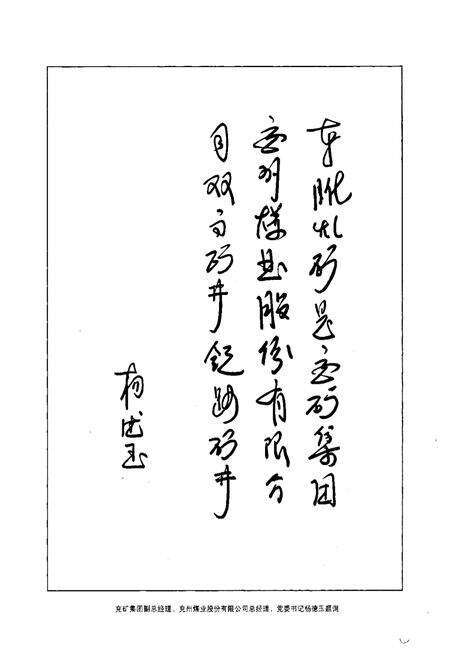 东滩煤矿是兖矿集团
兖州煤业股份有限公
司双高矿井 矿井
杨德玉
兖矿集团副总经理、兖州煤业股份有限公司总经理、党委书记杨德玉题词